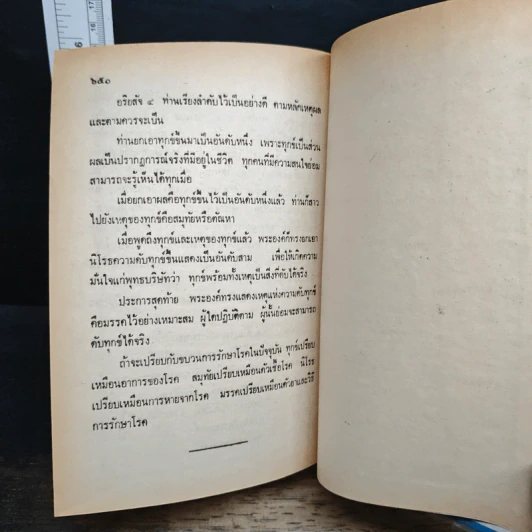 ๖๕๐
อริยสัจ ๔ ท่านเรียงลำดับไว้เป็นอย่างดี ตามหลักเหตุผล
และตามควรจะเป็น
ท่านยกเอาทุกข์ขึ้นมาเป็นอันดับหนึ่ง เพราะทุกข์เป็นส่วน
ผลเป็นปรากฏการณ์จริงที่มีอยู่ในชีวิต ทุกคนที่มีความสนใจย่อม
สามารถจะรู้เห็นได้ทุกเมื่อ
เมื่อยกเอาผลคือทุกข์ขึ้นไว้เป็นอันดับหนึ่งแล้ว ท่านก็สาว
ไปยังเหตุของทุกข์คือสมุทัยหรือตัณหา
เมื่อพูดถึงทุกข์และเหตุของทุกข์แล้ว พระองค์ก็ทรงยกเอา
นิโรธความดับทุกข์ขึ้นแสดงเป็นอันดับสาม เพื่อให้เกิดความ
มั่นใจแก่พุทธบริษัทว่า ทุกข์พร้อมทั้งเหตุเป็นสิ่งที่ดับได้จริง
ประการสุดท้าย พระองค์ทรงแสดงเหตุแห่งความดับทุกข์
คือมรรคไว้อย่างเหมาะสม ผู้ใดปฏิบัติตาม ผู้นั้นย่อมจะสามารถ
ดับทุกข์ได้จริง
ถ้าจะเปรียบกับขบวนการรักษาโรคในปัจจุบัน ทุกข์เปรียบ
เหมือนอาการของโรค สมุทัยเปรียบเหมือนตัวเชื้อโรค นิโรธ
เปรียบเหมือนการหายจากโรค มรรคเปรียบเหมือนตัวยาและวิธี
การรักษาโรค